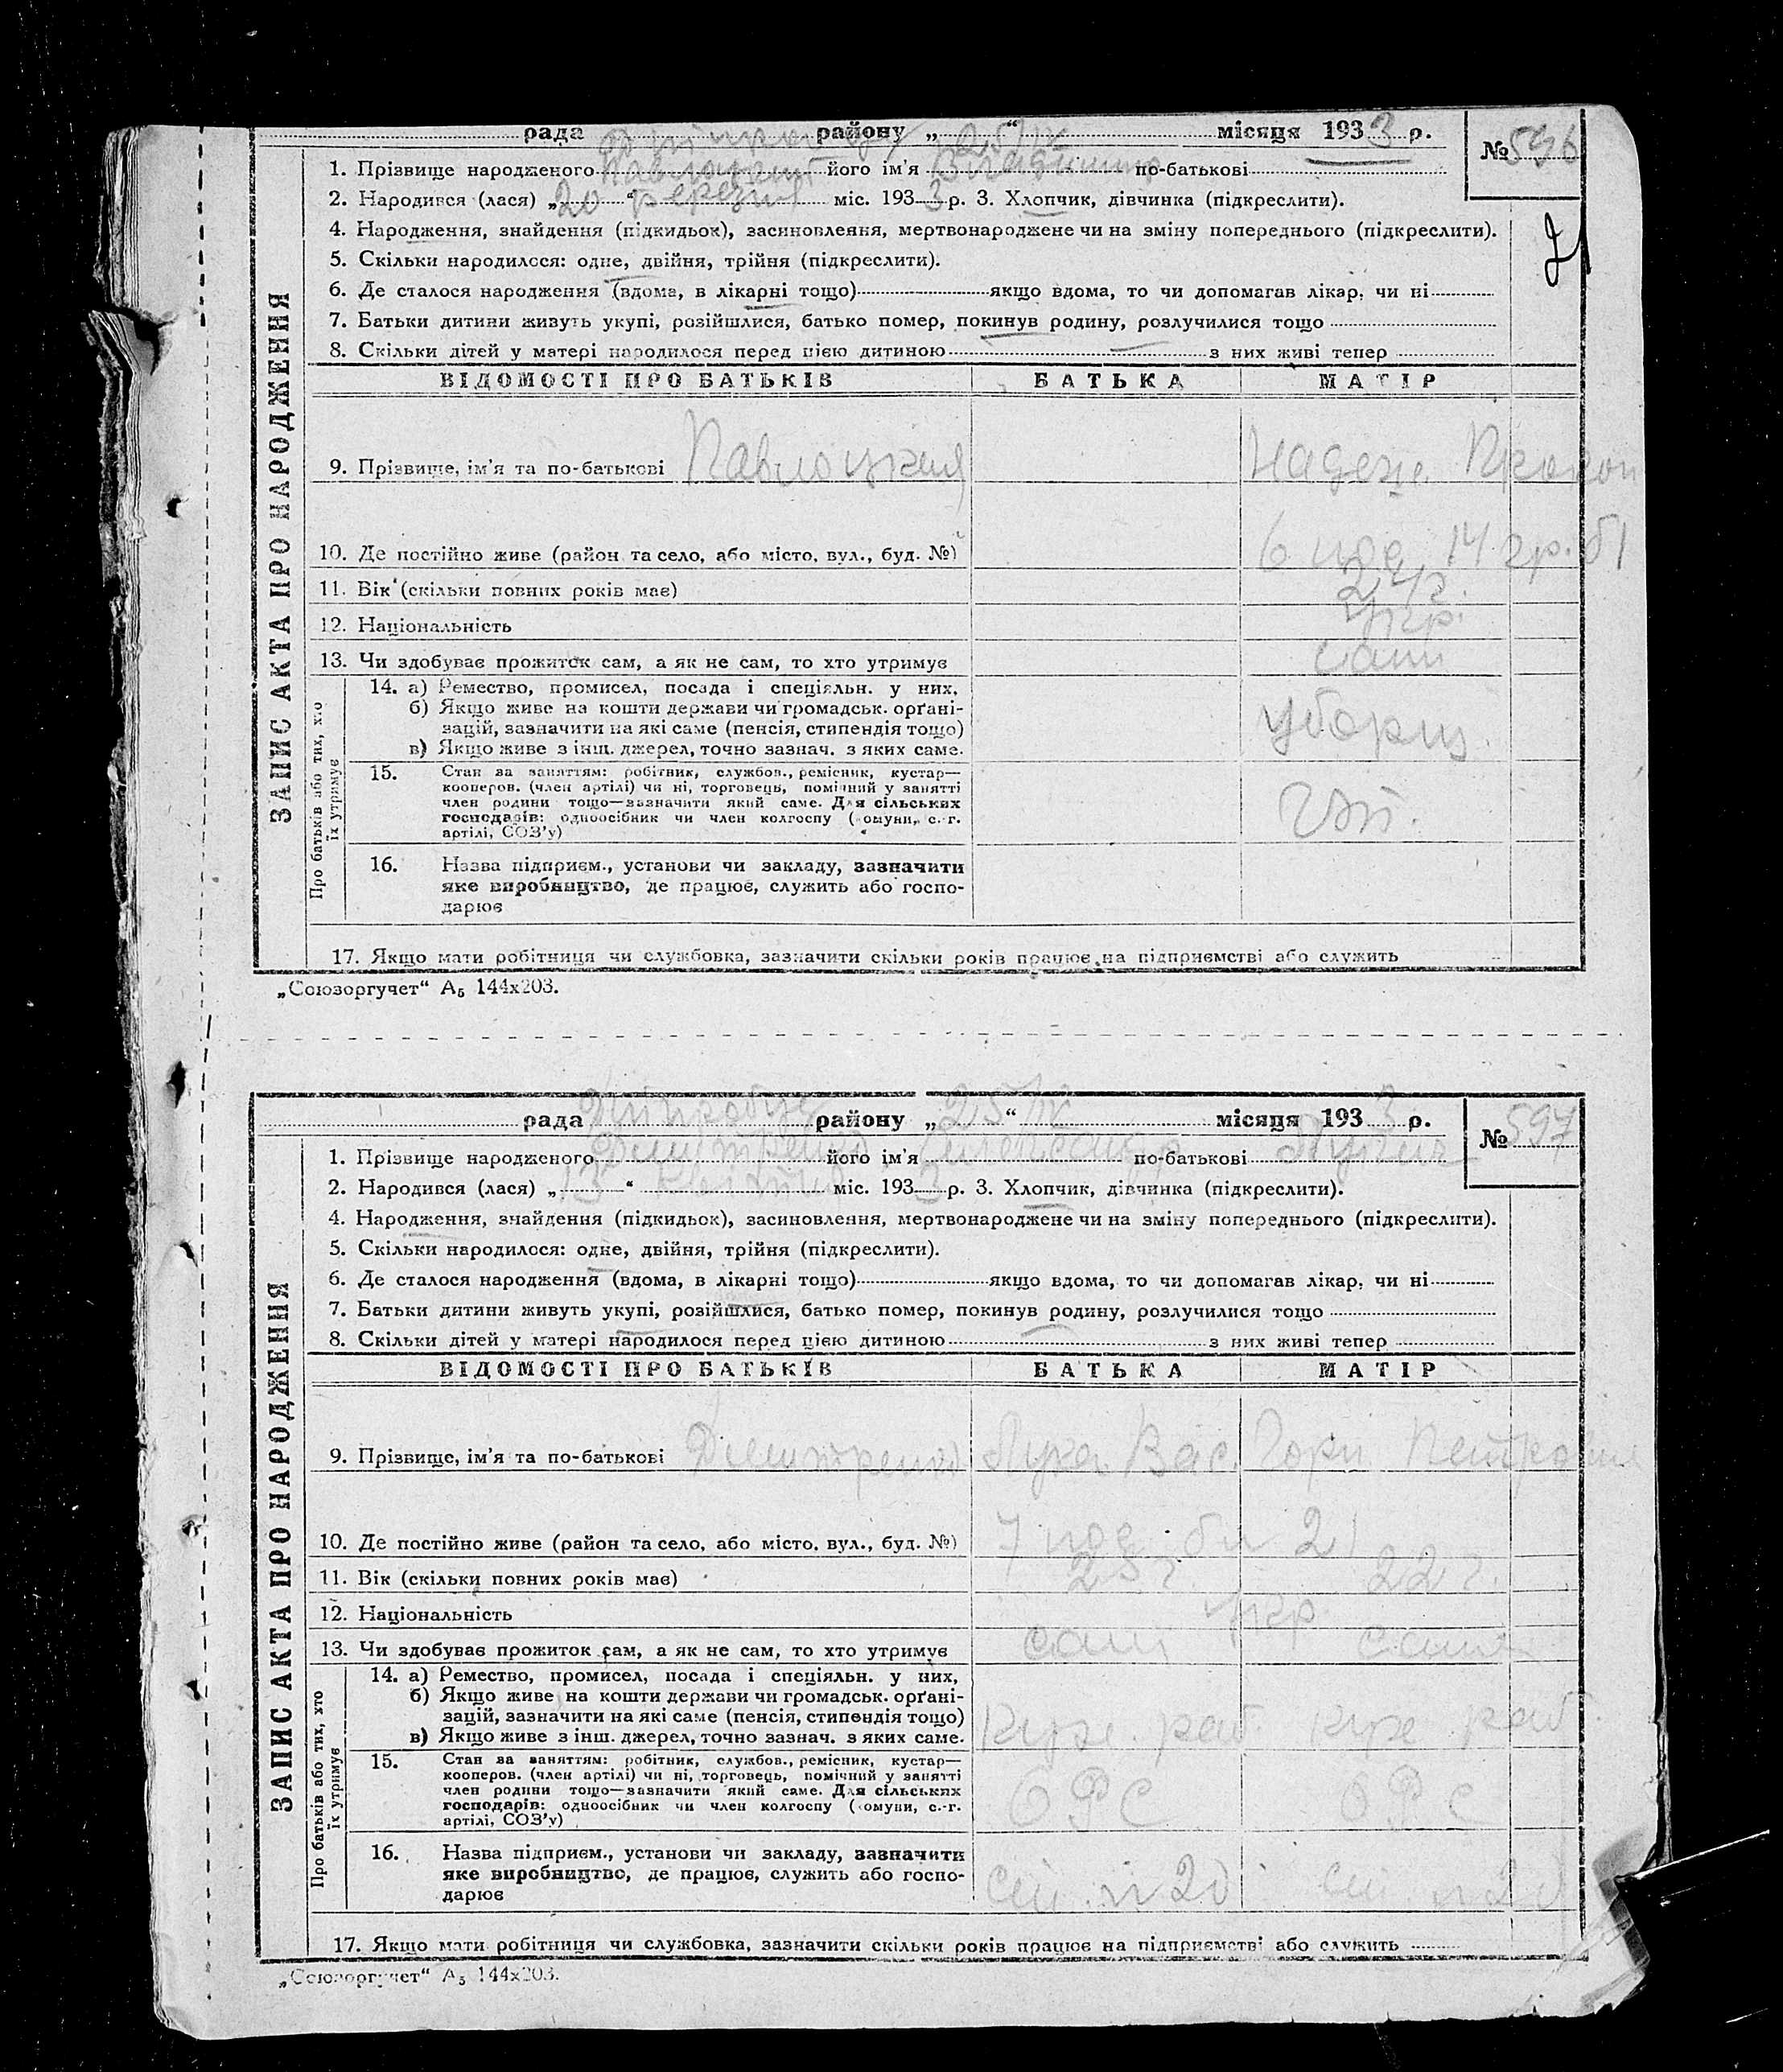 рада району „ “ місяця 1933 р.
№ 596
1. Прізвище народженого його ім'я Владимир по-батькові
2. Народився (лася) „20“ березня міс. 1933 р. 3. Хлопчик, дівчинка (підкреслити).
4. Народження, знайдення (підкидьок), засиновлення, мертвонароджене чи на зміну попереднього (підкреслити).
5. Скільки народилося: одне, двійня, трійня (підкреслити).
6. Де сталося народження (вдома, в лікарні тощо) якщо вдома, то чи допомагав лікар, чи ні
7. Батьки дитини живуть укупі, розійшлися, батько помер, покинув родину, розлучилися тощо
8. Скільки дітей у матері народилося перед цією дитиною з них живі тепер
ЗАПИС АКТА ПРО НАРОДЖЕННЯ
ВІДОМОСТІ ПРО БАТЬКІВ БАТЬКА МАТІР
9. Прізвище, ім'я та по-батькові Павлоцкая Надеж. Прокоп
10. Де постійно живе (район та село, або місто, вул., буд. №) 6 14
11. Вік (скільки повних років має)
12. Національність укр.
13. Чи здобуває прожиток сам, а як не сам, то хто утримує сами
Про батьків або тих, хто їх утримує
14. а) Ремество, промисел, посада і спеціяльн. у них.
б) Якщо живе на кошти держави чи громадськ. орґані-
зацій, зазначити на які саме (пенсія, стипендія тощо) уборщ.
в) Якщо живе з інш. джерел, точно зазнач. з яких саме.
15. Стан за заняттям: робітник, службов., ремісник, кустар—
кооперов. (член артілі) чи ні, торговець, помічний у занятті
член родини тощо—зазначити який саме. Для сільських
господарів: одноосібник чи член колгоспу (комуни, с.-г.
артілі, СОЗ'у)
16. Назва підприєм., установи чи закладу, зазначити
яке виробництво, де працює, служить або госпо-
дарює
17. Якщо мати робітниця чи службовка, зазначити скільки років працює на підприємстві або служить
„Союзоргучет“ А5 144х203.
рада району „25“ місяця 1933 р.
№ 597
1. Прізвище народженого його ім'я по-батькові
2. Народився (лася) „13“ міс. 1933 р. 3. Хлопчик, дівчинка (підкреслити).
4. Народження, знайдення (підкидьок), засиновлення, мертвонароджене чи на зміну попереднього (підкреслити).
5. Скільки народилося: одне, двійня, трійня (підкреслити).
6. Де сталося народження (вдома, в лікарні тощо) якщо вдома, то чи допомагав лікар, чи ні
7. Батьки дитини живуть укупі, розійшлися, батько помер, покинув родину, розлучилися тощо
8. Скільки дітей у матері народилося перед цією дитиною з них живі тепер
ЗАПИС АКТА ПРО НАРОДЖЕННЯ
ВІДОМОСТІ ПРО БАТЬКІВ БАТЬКА МАТІР
9. Прізвище, ім'я та по-батькові Лука Вас.
10. Де постійно живе (район та село, або місто, вул., буд. №) 7 21
11. Вік (скільки повних років має) 22 г.
12. Національність укр
13. Чи здобуває прожиток сам, а як не сам, то хто утримує сами
Про батьків або тих, хто їх утримує
14. а) Ремество, промисел, посада і спеціяльн. у них,
б) Якщо живе на кошти держави чи громадськ. орґані-
зацій, зазначити на які саме (пенсія, стипендія тощо)
в) Якщо живе з інш. джерел, точно зазнач. з яких саме. раб. раб.
15. Стан за заняттям: робітник, службов., ремісник, кустар—
кооперов. (член артілі) чи ні, торговець, помічний у занятті
член родини тощо—зазначити який саме. Для сільських ОРС ОРС
господарів: одноосібник чи член колгоспу (комуни, с.-г.
артілі, СОЗ'у)
16. Назва підприєм., установи чи закладу, зазначити
яке виробництво, де працює, служить або госпо-
дарює
17. Якщо мати робітниця чи службовка, зазначити скільки років працює на підприємстві або служить
„Союзоргучет“ А5 144х203.